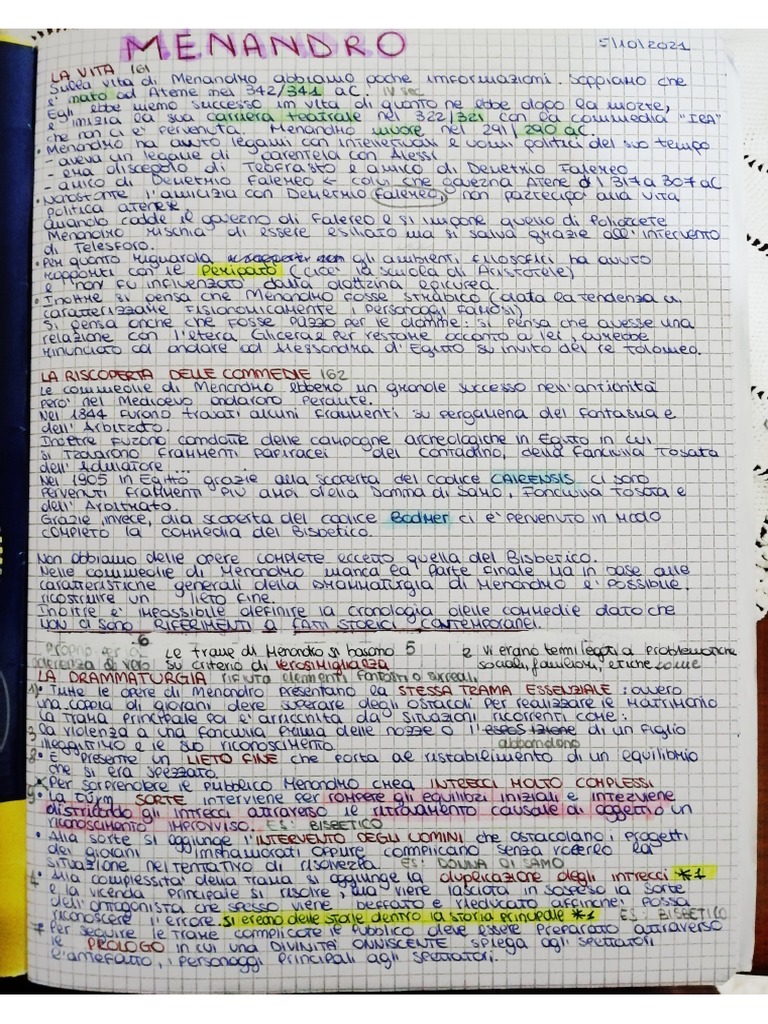 MENANDRO
5/10/2021
LA VITA 161
Sulla vita di Menandro abbiamo poche informazioni. Sappiamo che
e' nato ad Atene nel 342/341 a.C. IV sec
Egli ebbe meno successo in vita di quanto ne ebbe dopo la morte,
e inizia la sua carriera teatrale nel 322/321 con la commedia "IRA"
che non ci e' pervenuta. Menandro muore nel 291/290 a.C.
• Menandro ha avuto legami con intellettuali e uomini politici del suo tempo
- aveva un legame di parentela con Alessi
- era discepolo di Teofrasto e amico di Demetrio Falereo
- amico di Demetrio Falereo ← colui che governa Atene dl 317 a 307 a.C
• Nonostante l'amicizia con Demetrio Falereo, non partecipò alla vita
politica atenese
Quando cadde il governo di Falereo e si impone quello di Poliorcete
Menandro rischia di essere esiliato ma si salva grazie all'intervento
di Telesforo.
• Per quanto riguarda gli ambienti filosofici ha avuto
rapporti con le Peripato (cioe' la scuola di Aristotele)
e non fu influenzato dalla dottrina epicurea.
• Inoltre si pensa che Menandro fosse strabico (data la tendenza a
caratterizzare fisionomicamente i personaggi famosi)
Si pensa anche che fosse pazzo per le donne: si pensa che avesse una
relazione con l'etera Glicera e per restare accanto a lei, avrebbe
rinunciato ad andare ad Alessandra d'Egitto su invito del re Tolomeo.
LA RISCOPERTA DELLE COMMEDIE 162
Le commedie di Menandro ebbero un grande successo nell'antichità
però nel Medioevo andarono perdute.
Nel 1844 furono trovati alcuni frammenti su pergamena del Fantasma e
dell' Arbitrato.
Inoltre furono condotte delle campagne archeologiche in Egitto in cui
si trovarono frammenti papiracei del contadino, della Fanciulla Tosata
dell' Adulatore ...
Nel 1905 in Egitto grazie alla scoperta del codice CAIRENSIS ci sono
pervenuti frammenti più ampi della Donna di Samo, Fanciulla Tosata e
dell' Arbitrato.
Grazie invece, alla scoperta del codice Bodmer ci e' pervenuto in modo
completo la commedia del Bisbetico.
Non abbiamo delle opere complete eccetto quella del Bisbetico.
Nelle commedie di Menandro manca la parte finale ma in base alle
caratteristiche generali della drammaturgia di Menandro e' possibile
ricostruire un lieto fine.
Inoltre e' impossibile definire la cronologia delle commedie dato che
non ci sono RIFERIMENTI A FATTI STORICI CONTEMPORANEI.
6
Le trame di Menandro si basano 5
su criterio di verosimiglianza
2 vi erano temi legati a problematiche
sociali, familiari, etiche come
LA DRAMMATURGIA rifiuta elementi fantastici o surreali
1) • Tutte le opere di Menandro presentano la STESSA TRAMA ESSENZIALE: ovvero
una coppia di giovani deve superare degli ostacoli per realizzare il matrimonio
La trama principale poi e' arricchita da situazioni ricorrenti come:
3 la violenza a una fanciulla prima delle nozze o l'esposizione di un figlio
abbandono
illegittimo e le suo riconoscimento.
8• E' presente un LIETO FINE che porta al ristabilimento di un equilibrio
che si era spezzato.
Per sorprendere il pubblico Menandro crea INTRECCI MOLTO COMPLESSI
9• La SORTE interviene per rompere gli equilibri iniziali e interviene
districando gli intrecci attraverso il ritrovamento casuale di oggetti o un
riconoscimento improvviso. ES: BISBETICO
• Alla sorte si aggiunge l'INTERVENTO DEGLI UOMINI che ostacolano i progetti
dei giovani innamorati oppure complicano senza volerlo la
situazione nel tentativo di risolverla. ES: DONNA DI SAMO
4• Alla complessità della trama si aggiunge la duplicazione degli intrecci *1
e la vicenda principale si risolve, ma viene lasciata in sospeso la sorte
dell'antagonista che spesso viene beffato e rieducato affinche' possa
riconoscere l'errore. si creano delle storie dentro la storia principale *1 ES: BISBETICO
7 Per seguire le trame complicate il pubblico deve essere preparato attraverso
le PROLOGO in cui una DIVINITÀ ONNISCENTE spiega agli spettatori
l'antefatto, i personaggi principali agli spettatori.